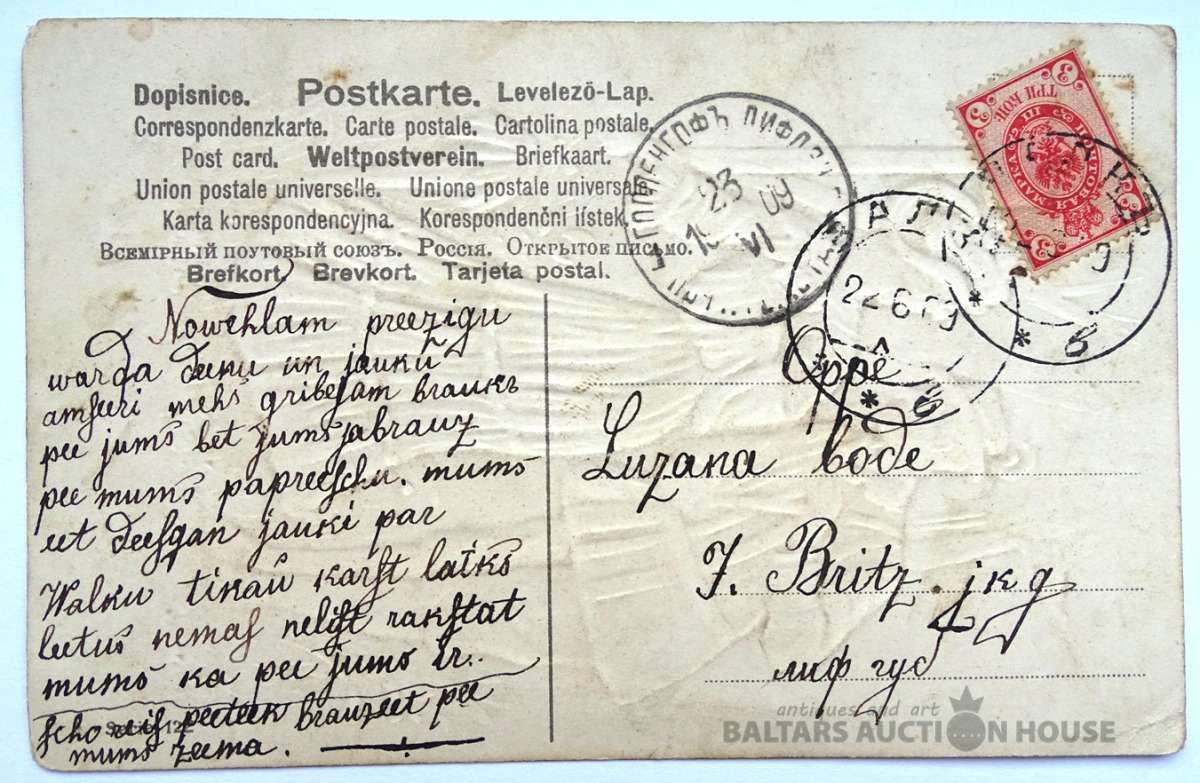 Dopisnice. Postkarte. Levelező-Lap.
Correspondenzkarte. Carte postale. Cartolina postale.
Post card. Weltpostverein. Briefkaart.
Union postale universelle. Unione postale universale
Karta korespondencyjna. Korespondenčni listek
Всемірный поутовый союзъ. Россія. Открытое письмо.
Brefkort. Brevkort. Tarjeta postal.
Nowehlam preezigu
warda deenu un jauku
amseeri mehs gribejam braukt
pee jums bet jums jabrauz
pee mums papreeschu. mums
eet deesgan jauki par
Walku tikai karst laiks
leetus nemas nelist rakstat
mums ka pee jums ir.
scho reis peeteek brauzeet pee
mums zeema.
23
VI
09
22 6 09
*
б
*
б
3
3
ТРИ КОП.
ПОЧТОВАЯ МАРКА
Oppe
Luzana bode
J. Britz. jkg
лиф губ
antiques and art
BALTARS AUCTION HOUSE